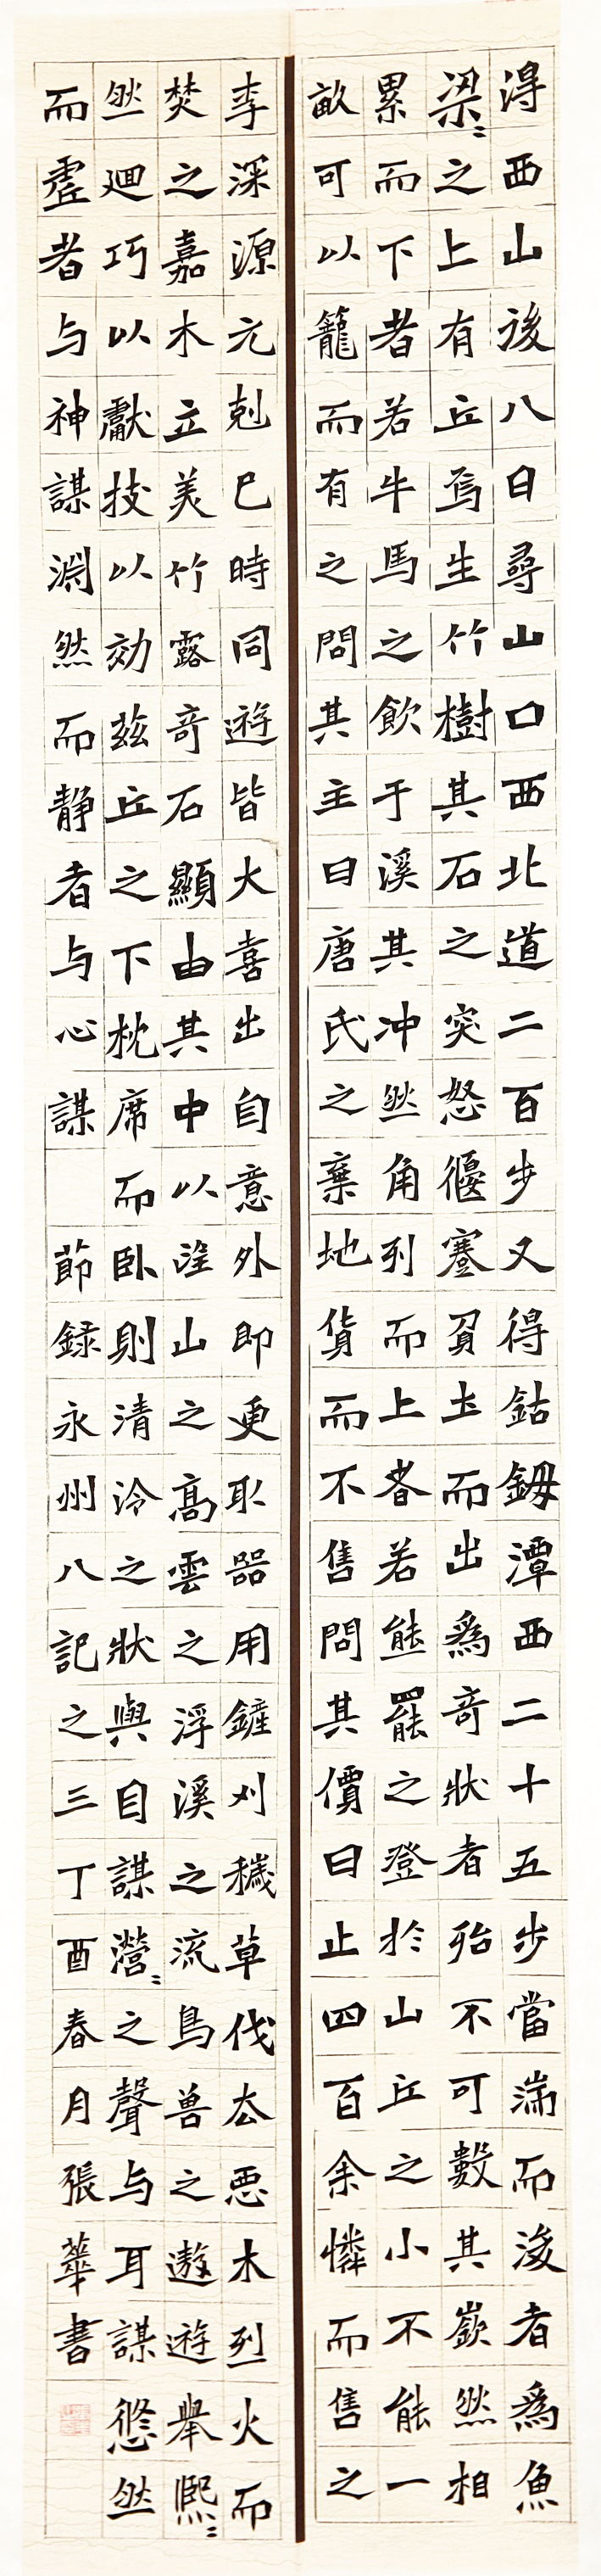 淂西山後八日尋山口西北道二百步又得鈷鉧潭西二十五步當湍而浚者爲魚
梁〻之上有丘焉生竹樹其石之突怒偃蹇負土而出爲奇狀者殆不可數其嶔然相
累而下者若牛馬之飲于溪其冲然角列而上者若熊羆之登於山丘之小不能一
畝可以籠而有之問其主曰唐氏之棄地貨而不售問其價曰止四百余憐而售之
李深源元剋巳時同遊皆大喜出自意外即更取器用鏟刈穢草伐去惡木烈火而
焚之嘉木立美竹露奇石顯由其中以望山之高雲之浮溪之流鳥兽之遨遊舉熙〻
然廻巧以獻技以効茲丘之下枕席而卧則清泠之狀與目謀瀯〻之聲与耳謀悠然
而虚者与神謀淵然而静者与心謀 節録永州八記之三丁酉春月張華書